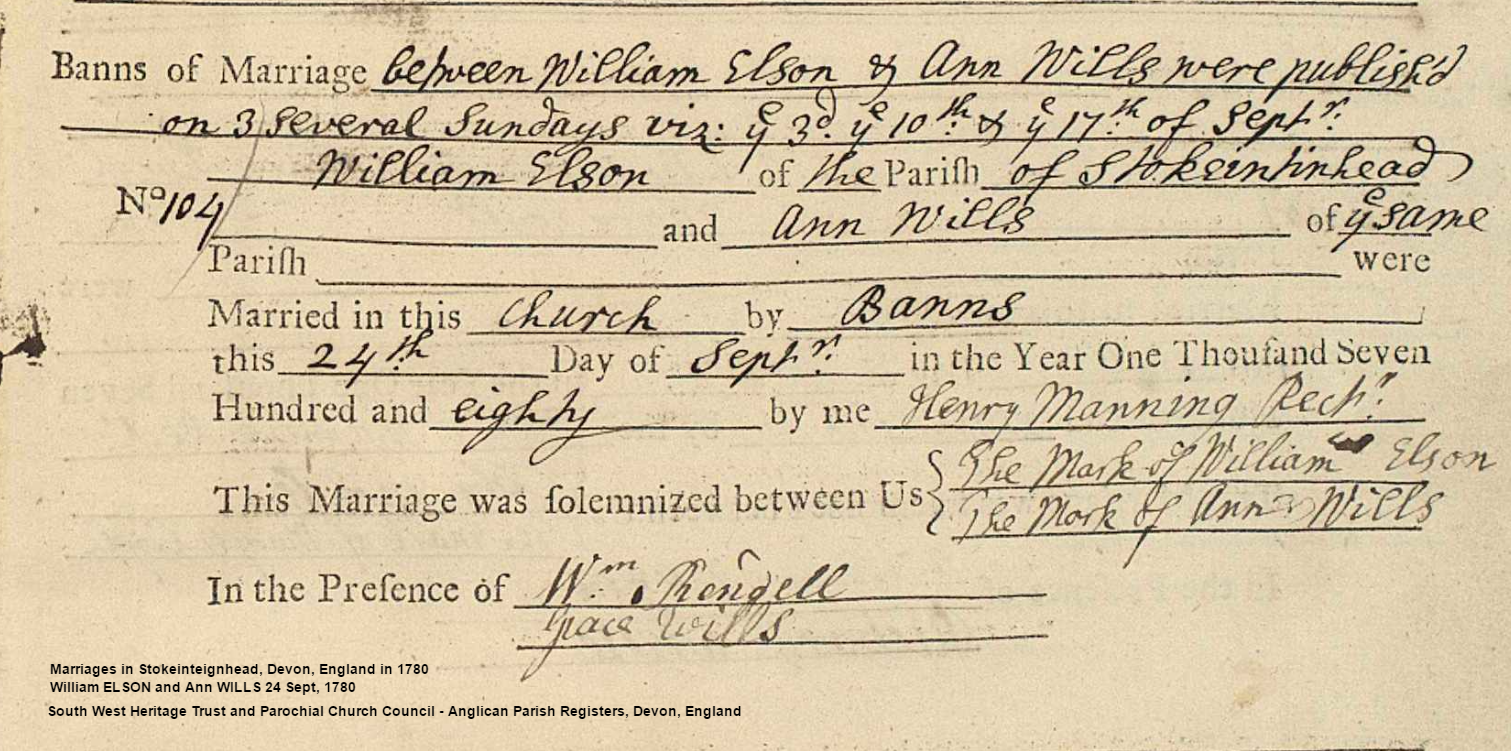 Banns of Marriage between William Elson & Ann Wills were publish'd
on 3 several Sundays viz: ye 3d. ye 10th. & ye 17th of Septr.
William Elson of the Pariſh of Stokeintinhead
No 104
and Ann Wills of ye same
Pariſh were
Married in this Church by Banns
this 24th Day of Septr. in the Year One Thouſand Seven
Hundred and eighty by me Henry Manning Rectr.
This Marriage was ſolemnized between Us { The Mark of William Elson
The Mark of Ann Wills
In the Preſence of Wm. Rendell
Grace Wills
Marriages in Stokeinteignhead, Devon, England in 1780
William ELSON and Ann WILLS 24 Sept, 1780
South West Heritage Trust and Parochial Church Council - Anglican Parish Registers, Devon, England